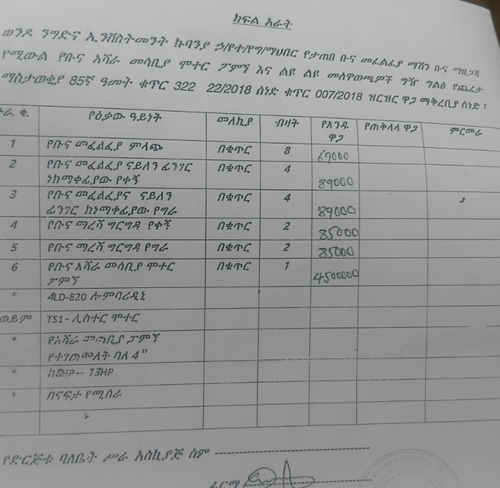 ክፍል አራት
ወንዶ ንግድና ኢንቨስትመንት ኩባንያ ኃ/የተ/የግ/ማህበር የታጠበ ቡና መፈልፈያ ማሽን ቡና ማዘጋጃ
የሚውል የቡና አሻራ መሳቢያ ሞተር ፓምፕ እና ልዩ ልዩ መለዋወጫዎች ግዥ ግልፅ የጨረታ
ማስታወቂያ 85ኛ ዓመት ቁጥር 322 22/2018 ሰነድ ቁጥር 007/2018 ዝርዝር ዋጋ ማቅረቢያ ሰነድ ፣
ተራ. ቁ. የዕቃው ዓይነት መለኪያ ብዛት የአንዱ ዋጋ የጠቅላላ ዋጋ ምርመራ
1 የቡና መፈልፈያ ምላጭ በቁጥር 8 69000
2 የቡና መፈልፈያ ናይለን ፊንገር በቁጥር 4
ከነማቀፊያው የቀኝ 89000
3 የቡና መፈልፈያና ናይለን በቁጥር 4
ፊንገር ከነማቀፊያው የግራ 89000
4 የቡና ማረሻ ግርግዳ የቀኝ በቁጥር 2 85000
5 የቡና ማረሻ ግርግዳ የግራ በቁጥር 2 85000
6 የቡና አሻራ መሳቢያ ሞተር በቁጥር 1
ፓምፕ 4500000
* 4LD-820 ሎምባሪዲኒ
ወይም TS1- ሊስተር ሞተር
* የአሻራ መጣቢያ ፓምፕ
የተገጠመለት ባለ 4"
* 13HP
* በናፍታ የሚሰራ
የድርጅቱ ባለቤት ሥራ አስኪያጅ ስም
ፊርማ